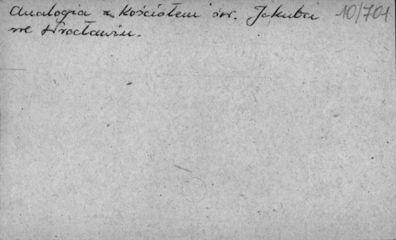 Analogia z Kościołem św. Jakuba 10/701
we Wrocławiu.